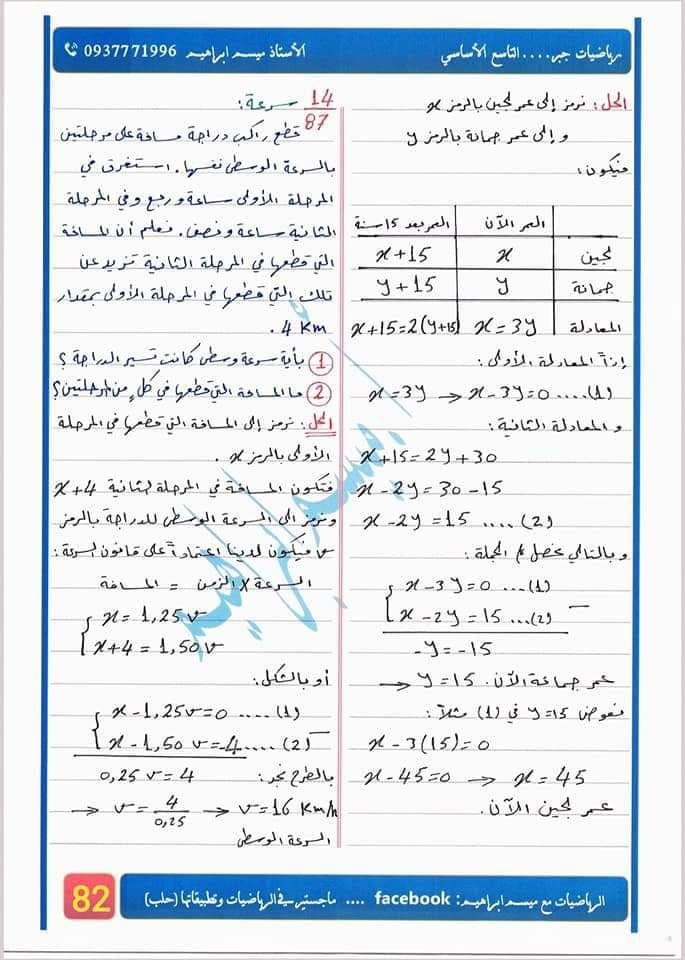 رياضيات جبر.... التاسع الأساسي
الأستاذ ميسم ابراهيم 0937771996
الحل: نرمز إلى عمر لجين بالرمز x
و إلى عمر جمانة بالرمز y
فيكون:
العمر الآن | العمر بعد 15 سنة
لجين | x | x+15
جمانة | y | y+15
المعادلة | x=3y | x+15=2(y+15)
إذاً المعادلة الأولى:
x=3y → x-3y=0 ....(1)
و المعادلة الثانية:
x+15=2y+30
x-2y=30-15
x-2y=15 .... (2)
و بالتالي نحصل الجملة:
x-3y=0 ...(1)
x-2y=15 ...(2)
-y=-15
→ y=15 عمر جمانة الآن.
نعوض y=15 في (1) مثلاً:
x-3(15)=0
x-45=0 → x=45
عمر لجين الآن.
14/87 سرعة:
قطع راكب دراجة مسافة على مرحلتين
بالسرعة الوسطى نفسها. استغرق في
المرحلة الأولى ساعة وربع وفي المرحلة
الثانية ساعة ونصف. فعلم أن المسافة
التي قطعها في المرحلة الثانية تزيد عن
تلك التي قطعها في المرحلة الأولى بمقدار
4 Km.
1 بأية سرعة وسطى كانت تسير الدراجة؟
2 ما المسافة التي قطعها في كلٍ من المرحلتين؟
الحل: نرمز إلى المسافة التي قطعها في المرحلة
الأولى بالرمز x.
فتكون المسافة في المرحلة الثانية x+4
ونرمز الى السرعة الوسطى للدراجة بالرمز
v فيكون لدينا اعتماداً على قانون السرعة:
المسافة = السرعة × الزمن
x=1,25v
x+4=1,50v
أو بالشكل:
x-1,25v=0 ....(1)
x-1,50v=-4....(2)
بالطرح نجد: 0,25v=4
→ v=4/0,25 → v=16 Km/h
السرعة الوسطى
الرياضيات مع ميسم ابراهيم: facebook .... ماجستير في الرياضيات وتطبيقاتها (حلب)
82